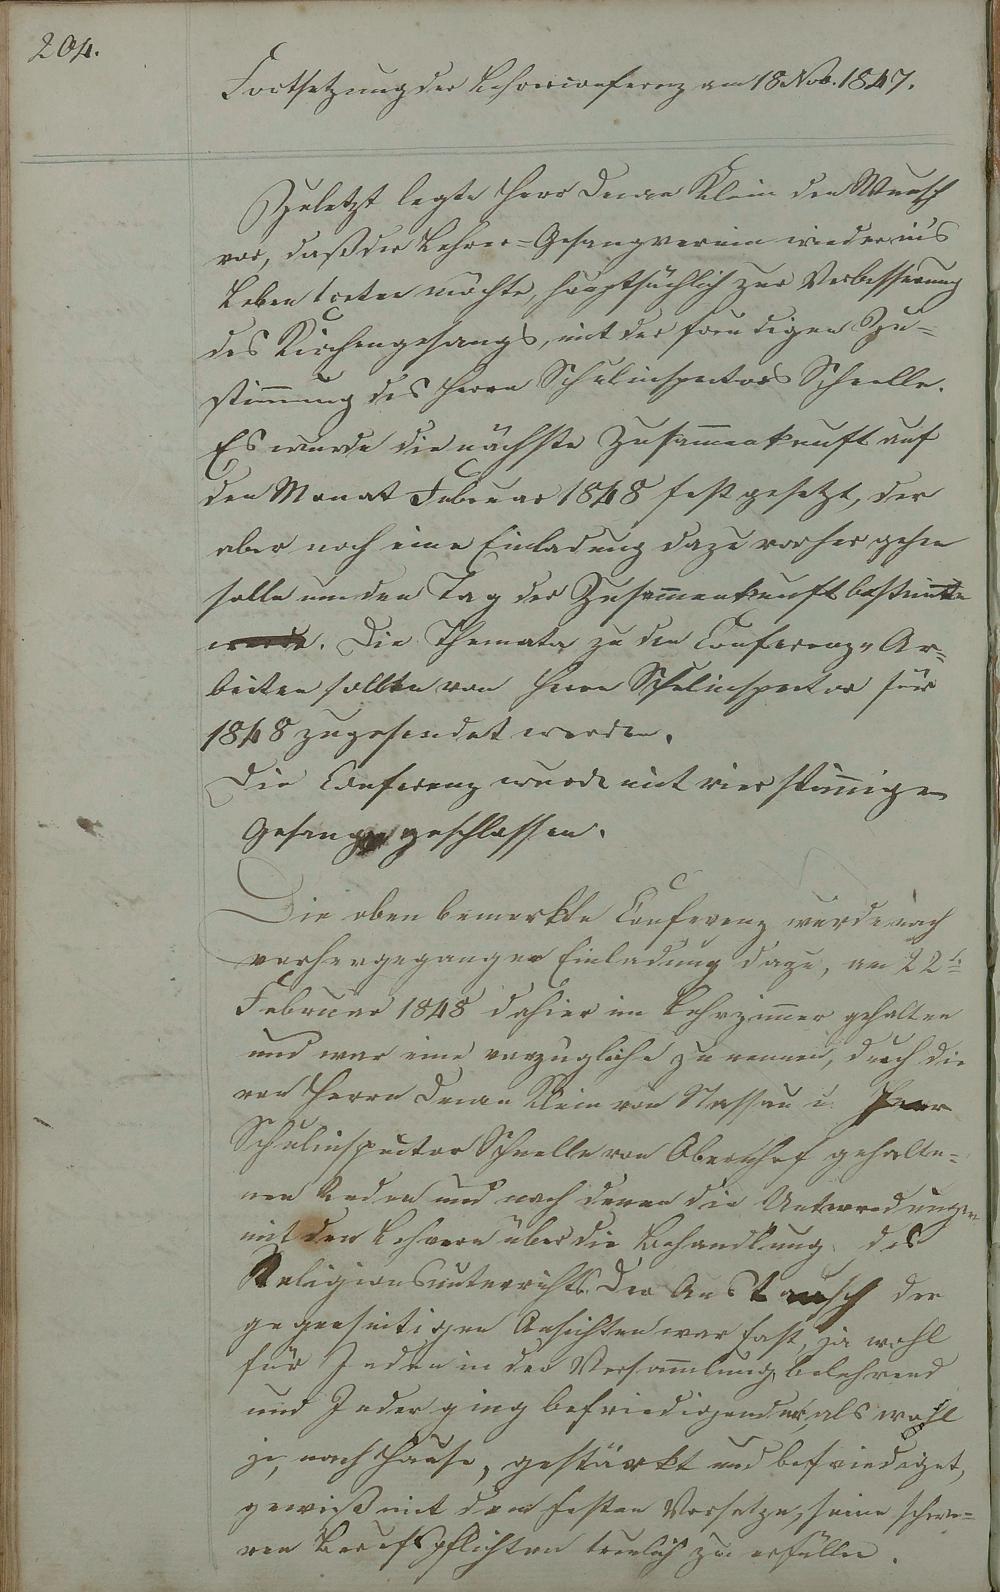 204.
Fortsetzung der Lehrerconferenz am 18 Nov. 1847.
Zuletzt legte Herr Decan Klein den Wunsch
vor, daß der Lehrer-Gesangverein wieder ins
Leben treten möchte, hauptsächlich zur Verbesserung
des Kirchengesangs, mit der freudigen Zu=
stimmung des Herrn Schulinspectors Schnelle.
Es wurde die nächste Zusammenkunft auf
den Monat Februar 1848 fest gesetzt, der
aber noch eine Einladung dazu vorher gehen
solle um den Tag der Zusammenkunft bestimte
werde. Die Themata zu den Conferenz-Ar=
beiten sollten von Herrn Schulinspector für
1848 zugesendet werden.
Die Conferenz wurde mit vierstimigen
Gesange geschlossen.
Die oben bemerkte Conferenz wurde nach
vorhergeganger Einladung dazu, am 22t
Februar 1848 dahier im Lehrzimmer gehalten
und war eine vorzugliche zu nennen, durch die
von Herrn Decan Klein von Nassau u. Herr
Schulinspector Schnelle von Obernhof gehalte=
nen Reden und nach denen die Unterredungen
mit den Lehrern über die Behandlung des
Religionsunterrichts. Der Austausch der
gegenseitigen Ansichten war fast, ja wohl
für Jeden in der Versammlung belehrend
und Jeder ging befriedigender, als wohl
je, nach Hause, gestärkt und befriediget,
gewiß mit dem festen Vorsatze, seine schwe=
ren Berufspflichten treulich zu erfüllen.